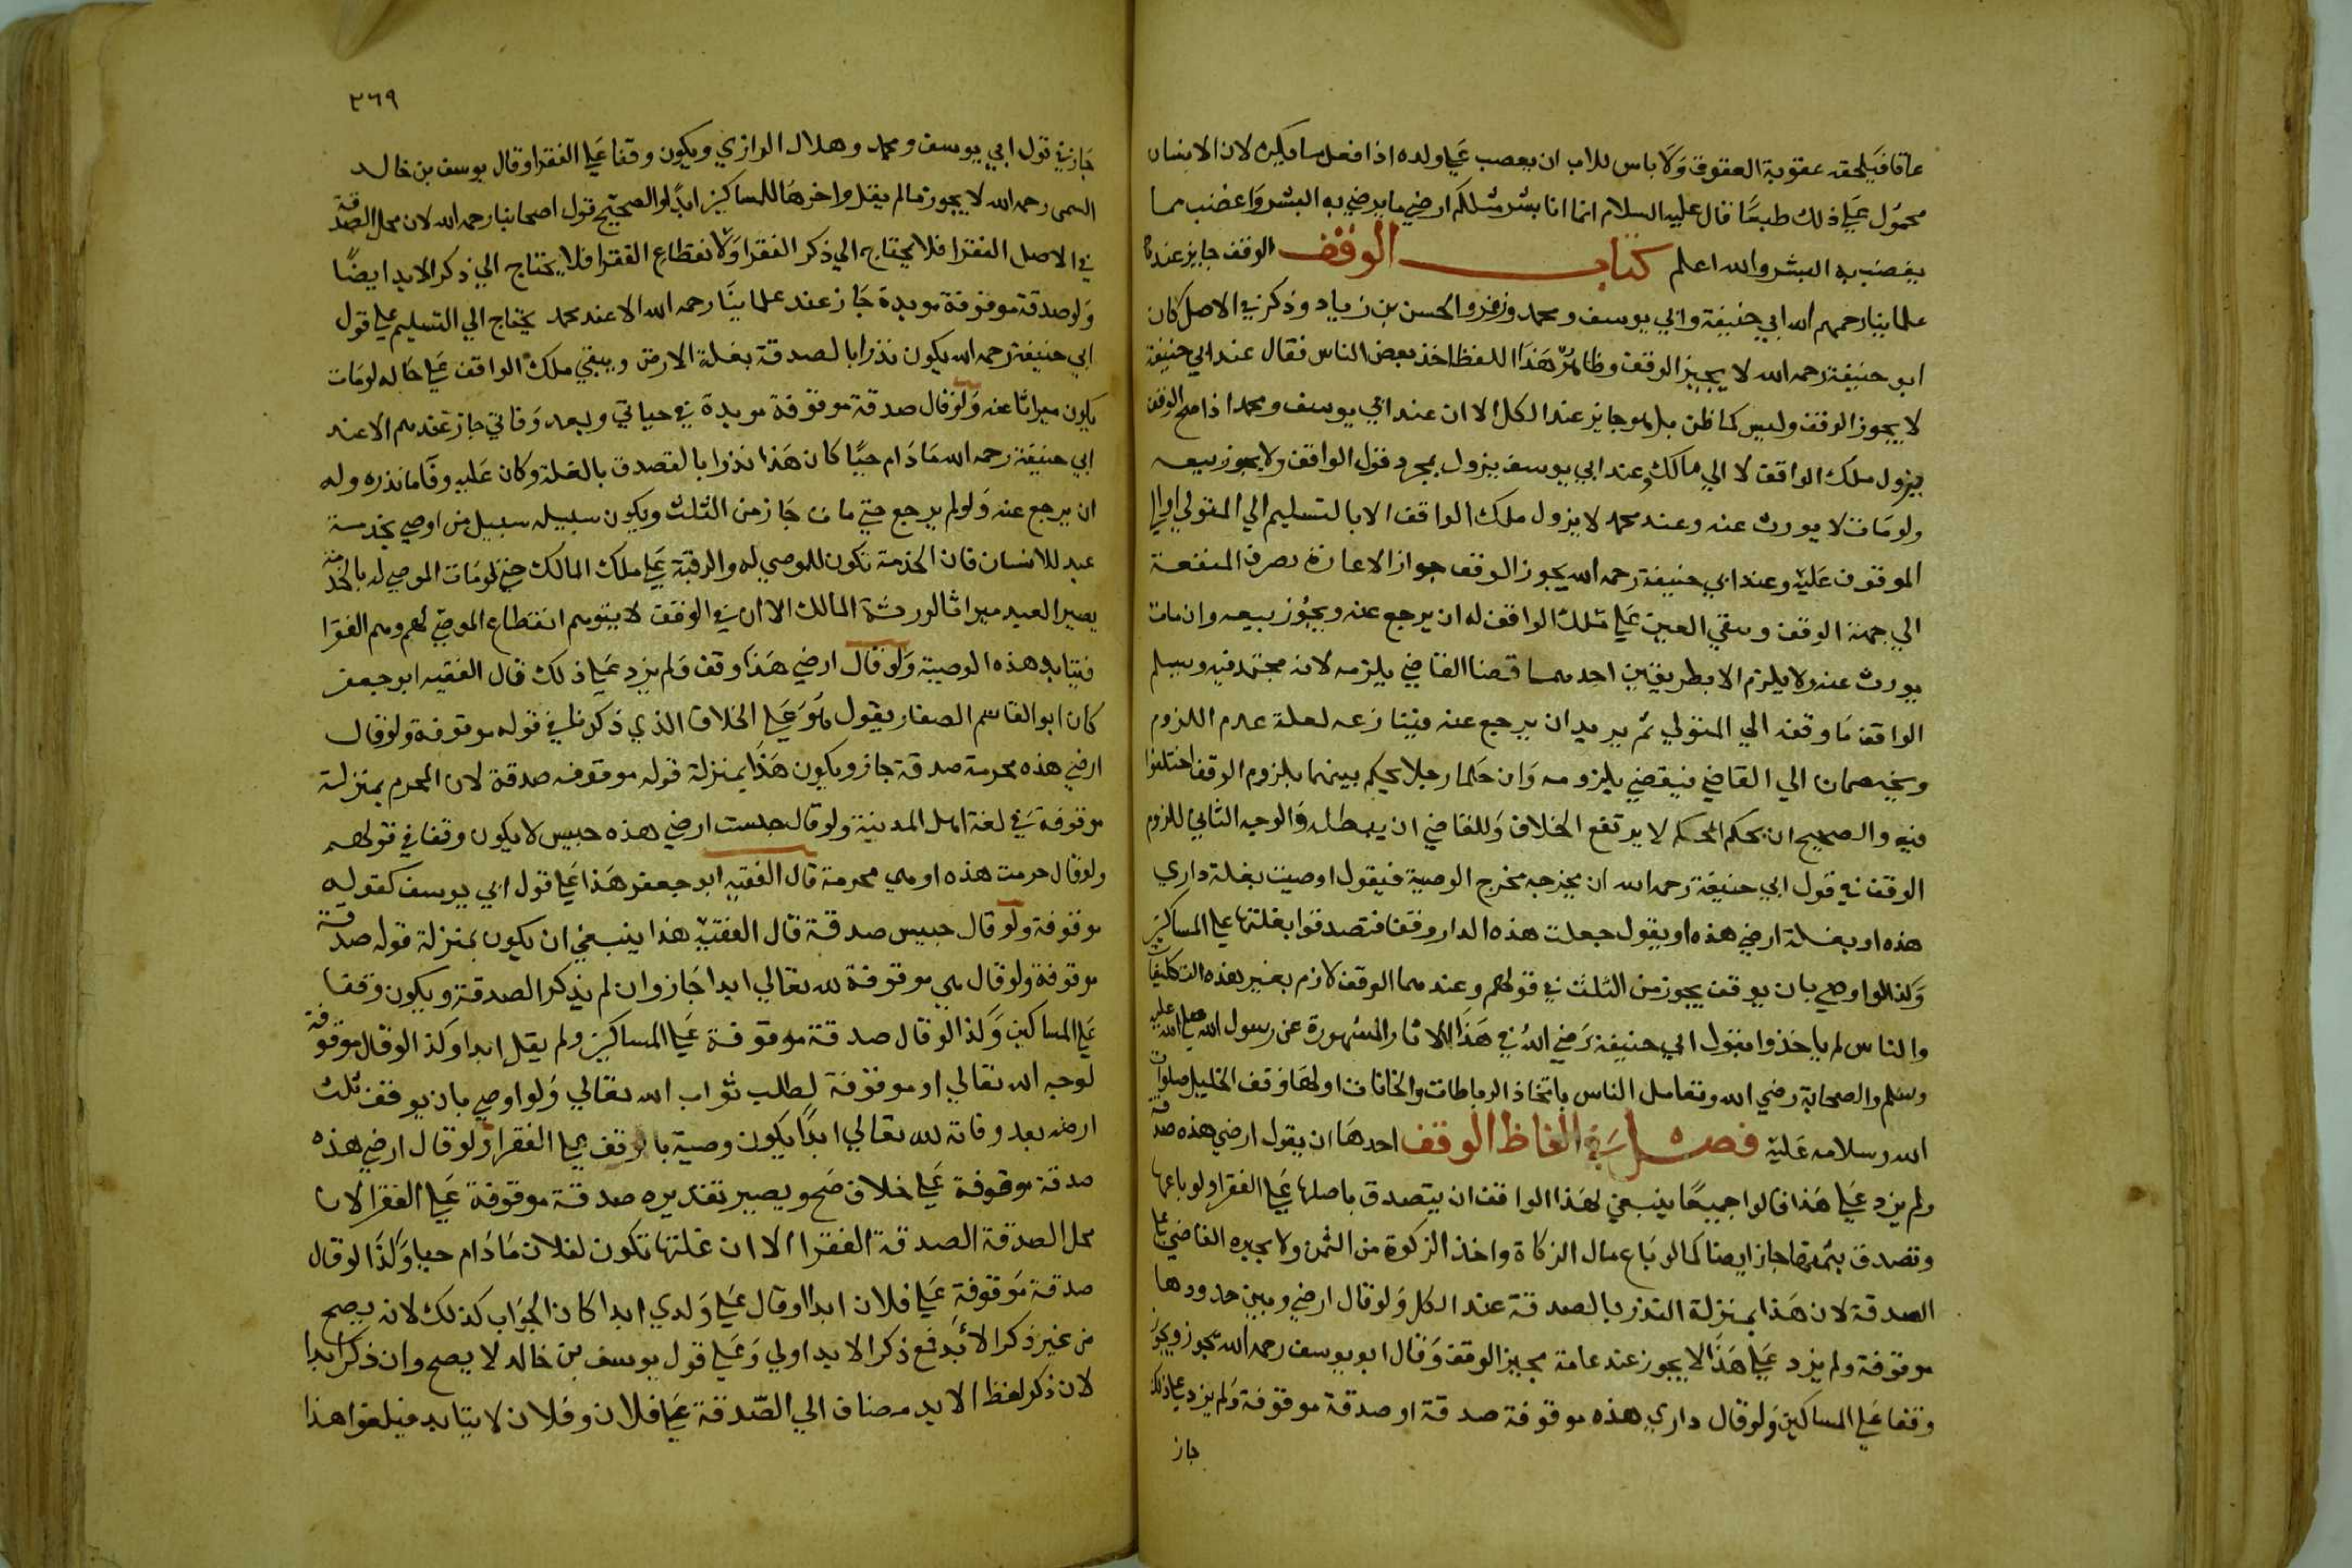 عاقا فيلحقه عقوبة العقوق ولا باس للاب ان يعصب علي ولده اذا فعل ما يكره لان الانسان
محمول علي ذلك طبعا قال عليه السلام انما انا بشر مثلكم ارضي ما يرضي به البشر واغضب مما
يغضب به البشر والله اعلم كتاب الوقف الوقف جايز عند
علماينا رحمهم الله ابي حنيفة وابي يوسف ومحمد وزفر والحسن بن زياد وذكر في الاصل كان
ابو حنيفة رحمه الله لا يجيز الوقف وظاهر هذا اللفظ اخذ بعض الناس فقال عند ابي حنيفة
لا يجوز الوقف وليس كما ظن بل هو جايز عند الكل الا ان عند ابي يوسف ومحمد اذا صح الوقف
يزول ملك الواقف لا الي مالك وعند ابي يوسف يزول بمجرد قول الواقف ولا يجوز بيعه
ولو مات لا يورث عنه وعند محمد لا يزول ملك الواقف الا بالتسليم الي المتولي او الي
الموقوف عليه وعند ابي حنيفة رحمه الله يجوز الوقف جواز الاعارة بصرف المنفعة
الي جهة الوقف وبقي العين علي ملك الواقف له ان يرجع عنه ويجوز بيعه وان مات
يورث عنه ولا يلزم الا بطريقين احدهما قضا القاضي يلزمه لانه مجتهد فيه ويسلم
الواقف ما وقفه الي المتولي ثم يريد ان يرجع عنه فينازعه لعلة عدم اللزوم
ويختصمان الي القاضي فيقضي بلزومه وان حكما رجلا يحكم بينهما بلزوم الوقف اختلفوا
فيه والصحيح ان بحكم المحكم لا يرتفع الخلاف وللقاضي ان يبطله والوجه الثاني للزوم
الوقف في قول ابي حنيفة رحمه الله ان يخرجه مخرج الوصية فيقول اوصيت بغلة داري
هذه او بغلة ارضي هذه او يقول جعلت هذه الدار وقفا فتصدقوا بغلتها علي المساكين
وكذا لو اوصي بان يوقف يجوز من الثلث في قولهم وعندهما الوقف لازم بغير هذه التكليفات
والناس لم ياخذوا بقول ابي حنيفة رضي الله في هذا للاثار المشهورة عن رسول الله صلي الله عليه
وسلم والصحابة رضي الله وتعامل الناس باتخاذ الرباطات والخانات اولها وقف الخليل صلوات
الله وسلامه عليه فصل في الفاظ الوقف احدها ان يقول ارضي هذه صدقة
ولم يزد علي هذا قالوا جميعا ينبغي لهذا الواقف ان يتصدق باصلها علي الفقرا ولو باعها
وتصدق بثمنها جاز ايضا كما لو باع مال الزكاة واخذ الزكوة من الثمن ولا يجبره القاضي علي
الصدقة لان هذا بمنزلة النذر بالصدقة عند الكل ولو قال ارضي وبين حدودها
موقوفة ولم يزد علي هذا لا يجوز عند عامة مجيز الوقف وقال ابو يوسف رحمه الله يجوز ويكون
وقفا علي المساكين ولو قال داري هذه موقوفة صدقة او صدقة موقوفة ولم يزد علي ذلك
جاز
٣٦٩
جاز في قول ابي يوسف ومحمد وهلال الرازي ويكون وقفا علي الفقرا وقال يوسف بن خالد
السمي رحمه الله لا يجوز ما لم يقل واخرها للمساكين ابدا والصحيح قول اصحابنا رحمه الله لان محل الصدقة
في الاصل الفقرا فلا يحتاج الي ذكر الفقرا ولا انقطاع الفقرا فلا يحتاج الي ذكر الابد ايضا
ولو صدقة موقوفة موبدة جاز عند علماينا رحمه الله الا عند محمد يحتاج الي التسليم علي قول
ابي حنيفة رحمه الله يكون نذرا بالصدقة بغلة الارض ويبقي ملك الواقف علي حاله لو مات
يكون ميراثا عنه ولو قال صدقة موقوفة موبدة في حياتي وبعد وفاتي جاز عندهم الا عند
ابي حنيفة رحمه الله ما دام حيا كان هذا نذرا بالتصدق بالغلة وكان عليه وفا ما نذره وله
ان يرجع عنه ولو لم يرجع حتي مات جاز من الثلث ويكون سبيله سبيل من اوصي بخدمة
عبد للانسان فان الخدمة تكون للموصي له والرقبة علي ملك المالك حتي لو مات الموصي له بالخدمة
يصير العبد ميراثا لورثة المالك الا ان في الوقف لا يتوهم انقطاع الموصي لهم وهم الفقرا
فيتابد هذه الوصية ولو قال ارضي هذا وقف ولم يزد علي ذلك قال الفقيه ابو جعفر
كان ابو القاسم الصفار يقول هو علي الخلاف الذي ذكرنا في قوله موقوفة ولو قال
ارضي هذه محرمة صدقة جاز ويكون هذا بمنزلة قوله موقوفه صدقة لان المحرم بمنزلة
موقوفة في لغة اهل المدينة ولو قال حبست ارضي هذه حبيس لا يكون وقفا في قولهم
ولو قال حرمت هذه او هي محرمة قال الفقيه ابو جعفر هذا علي قول ابي يوسف كقوله
موقوفة ولو قال حبيس صدقة قال الفقيه هذا ينبغي ان يكون بمنزلة قوله صدقة
موقوفة ولو قال هي موقوفة لله تعالي ابدا جاز وان لم يذكر الصدقة ويكون وقفا
علي المساكين وكذا لو قال صدقة موقوفة علي المساكين ولم يقل ابدا وكذا لو قال موقوفة
لوجه الله تعالي او موقوفة لطلب ثواب الله تعالي ولو اوصي بان يوقف ثلث
ارضه بعد وفاته لله تعالي ابدا يكون وصية بالوقف علي الفقرا ولو قال ارضي هذه
صدقة موقوفة علي خلاف صح ويصير تقديره صدقة موقوفة علي الفقرا لان
محل الصدقة الصدقة الفقرا الا ان غلتها تكون لفلان ما دام حيا وكذا لو قال
صدقة موقوفة علي فلان ابدا او قال علي ولدي ابدا كان الجواب كذلك لانه يصح
من غير ذكر الابد فمع ذكر الابد اولي وعلي قول يوسف بن خالد لا يصح وان ذكر ابدا
لان ذكر لفظ الابد مضاف الي الصدقة علي فلان وفلان لا يتابد فيلغوا هذا